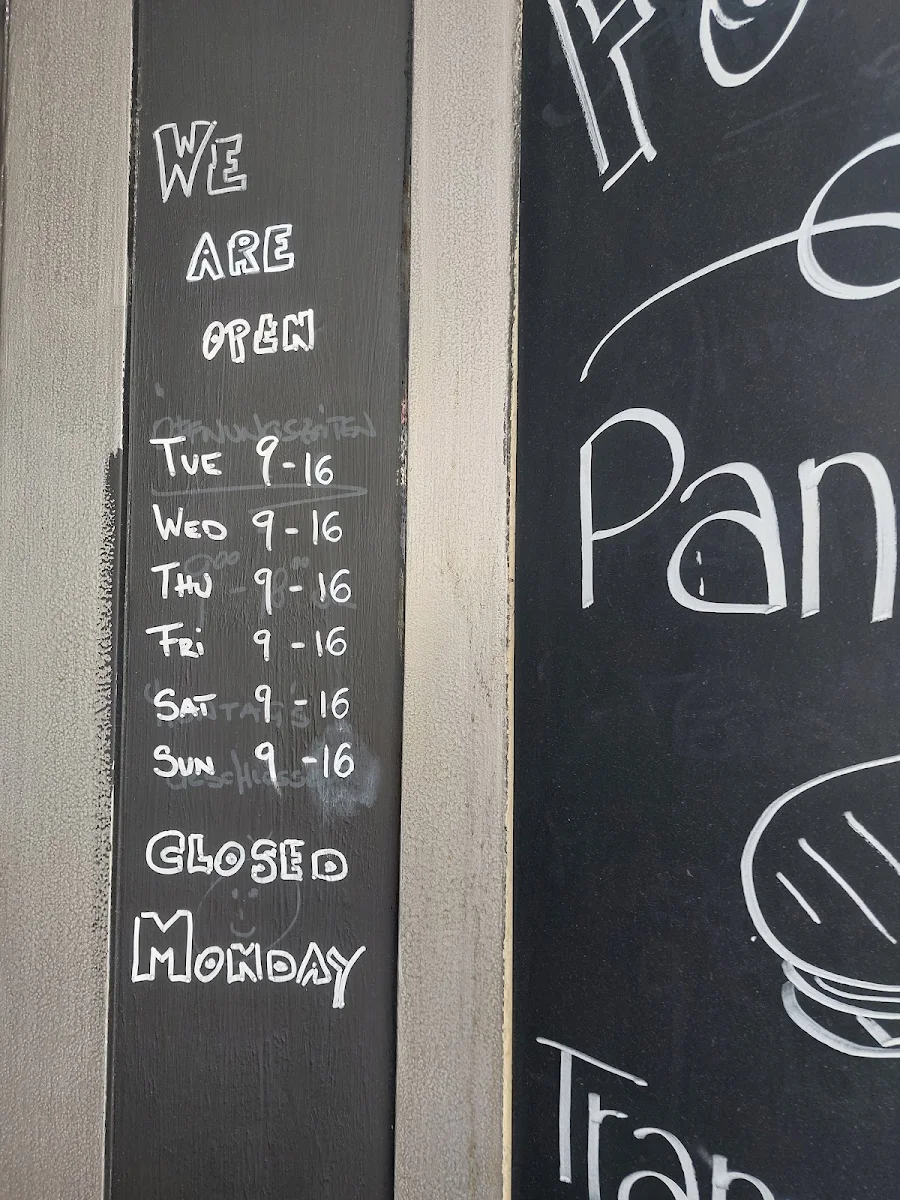 WE
ARE
OPEN
ÖFFNUNGSZEITEN
TUE 9-16
WED 9-16
THU 9-16
FRI 9-16
SAT 9-16
SUN 9-16
CLOSED
MONDAY
Pan
Tran